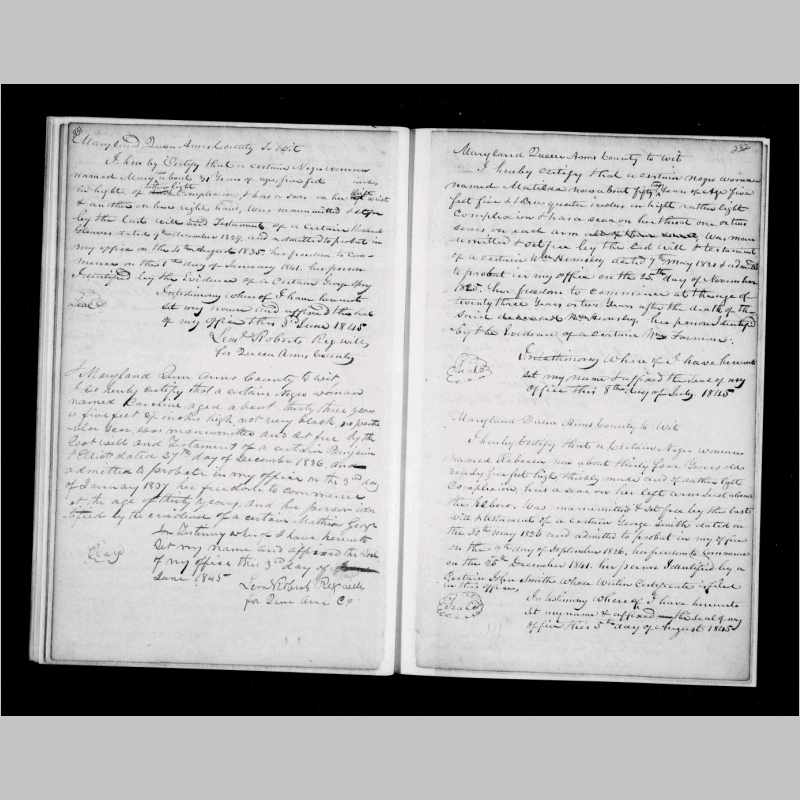 Maryland Queen Anns County to wit
I hereby Certify that a certain Negro woman
named Mary about 31 Years of age five feet
in hight, of light Complexion, & has a scar on her wrist
& another on her right hand, Was manumitted & set free
by the Last will and Testament of a Certain
dated 9th december 1829, and admitted to probat in
my office on the 4th August 1835, her freedom to com-
mence on the 1st day of January 1841. her person
Identified by the Evidence of a Certain George
In testimony whereof I have hereunto
set my name and affixed the seal
of my office this 3d June 1845
Seal
Leml Roberts Reg. wills
for Queen Anns County
Maryland Queen Anns County to wit,
I do hereby certify that a certain Negro woman
named aged about thirty three years
is five feet inches high, not very black no particu-
lar scar, was manumitted and set free by the
last will and Testament of a certain Benjamin
Elliott dated 27th day of December 1836, and
admitted to probate in my office on the 3rd day
of January 1837, her freedom to commence
at the age of thirty years, and her person iden-
tified by the evidence of a certain Mathew George
In Testimony where of I have hereunto
set my name and affixed the seal
of my office this 3d day of
June 1845
Seal
Leml Roberts Reg wills
for Queen Ann Cy
Maryland Queen Anns County to wit
I hereby certify that a certain negro woman
named Matilda now about fifty Years of Age five
feet five & three quarter inches in hight rather light
Complexion & has a scar on her throat one or two
scars on each arm Was man-
umitted & set free by the last will & testament
of a certain Wm Hemsley dated 7th May 1821 & admitted
to probat in my office on the 25th day of November
1825, her freedom to commence at the age of
twenty three Years or two Years after the death of the
said Wm Hemsley. her person Identified
by the Evidence of a certain Wm
In testimony Where of I have hereunto
set my name & affixed the seal of my
office this 8th day of July 1845
Seal
Maryland Queen Anns County to wit
I hereby Certify that a Certain Negro woman
named Rebecca now about thirty four Years old
five feet high thickly made and of rather light
Complexion, has a scar on her left arm Just above
the Elbow. Was manumitted & set free by the last
will & testament of a Certain George Smith dated on
the 30th May 1826 and admitted to probat in my office
on the 9th day of September 1826, her freedom to Commence
on the 25th December 1841. her person Identified by a
Certain John Smith Whose Written Certificate is filed
in this office,
In testimony Where of I have hereunto
set my name & affixed the seal of my
office this 5th day of August 1845
Seal